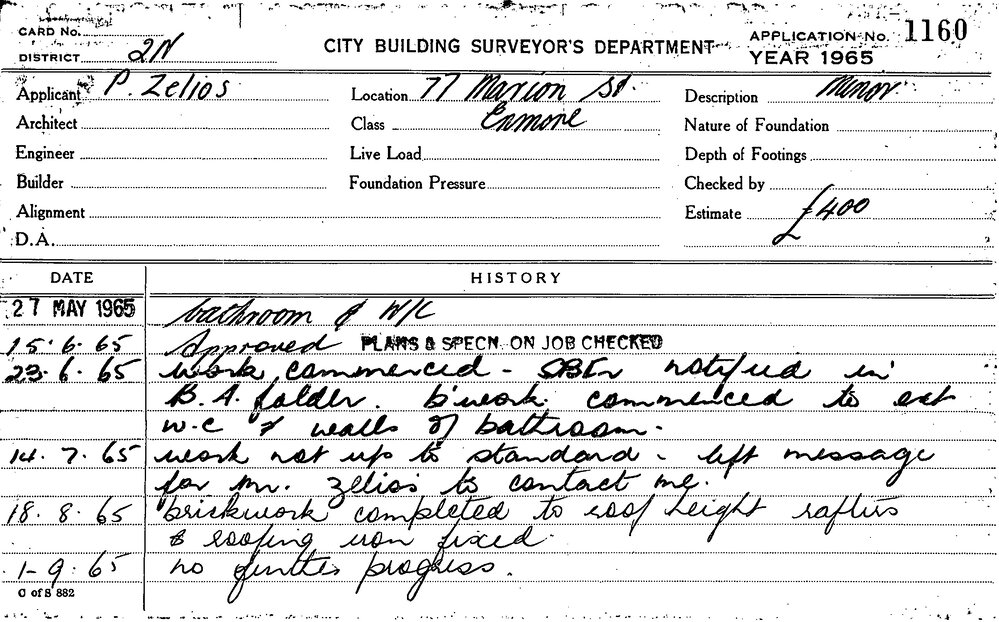 CARD No.
DISTRICT 2N
CITY BUILDING SURVEYOR'S DEPARTMENT
APPLICATION No. 1160
YEAR 1965
Applicant P. Zelios
Location 77 Marion St.
Description Minor
Architect
Class Enmore
Nature of Foundation
Engineer
Live Load
Depth of Footings
Builder
Foundation Pressure
Checked by
Alignment
Estimate £400
D.A.
DATE HISTORY
27 MAY 1965 bathroom & W/C
15.6.65 Approved PLANS & SPECN. ON JOB CHECKED
23.6.65 work commenced - notified in
B.A. folder. b'work commenced to ext
w.c & walls of bathroom.
14.7.65 work not up to standard - left message
for Mr. Zelios to contact me.
18.8.65 brickwork completed to roof height rafters
& roofing iron fixed.
1-9.65 no further progress.
C of S 882